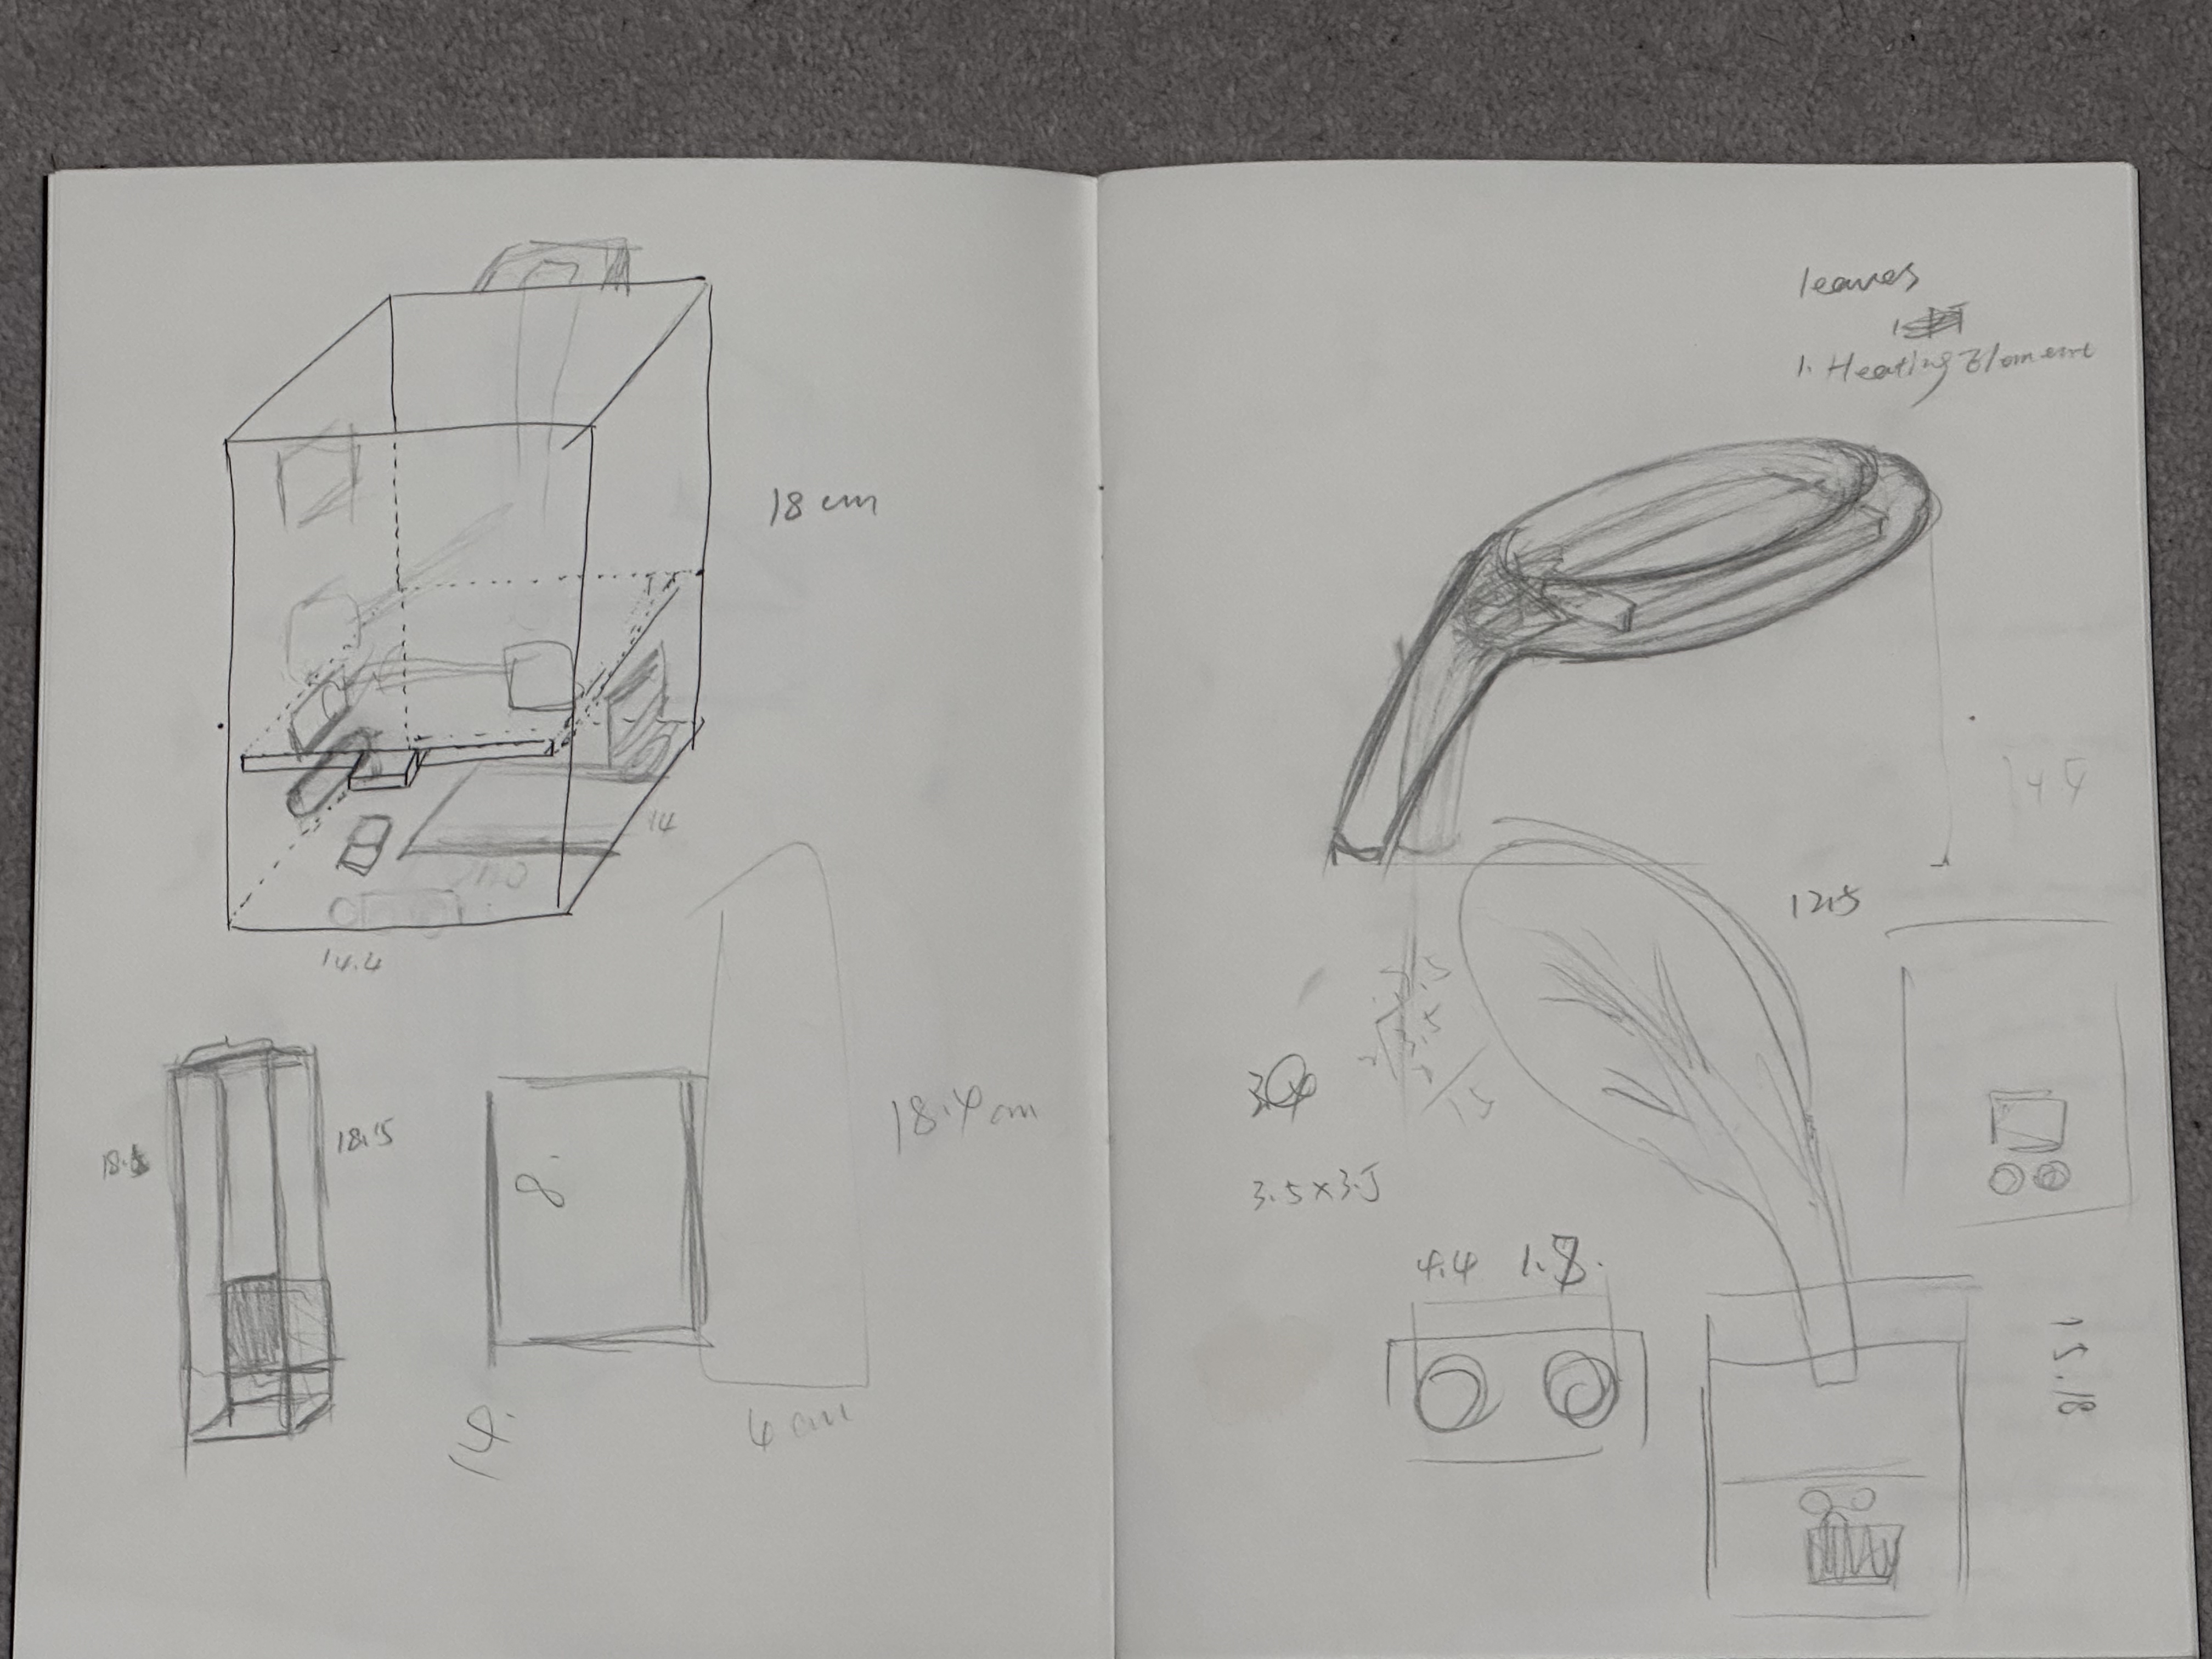 18 cm
14
14.4
18.5
8
18.4 cm
14.
6 cm
leaves
1. Heating Element
12.5
3.5×3.5
4.4 1.8.
15.18